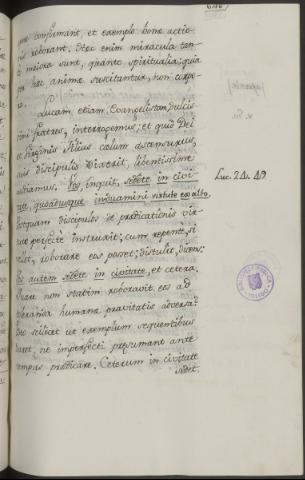 confirmant, et exemplo bonæ actio-
roborant. Hæc enim miracula tan-
maiora sunt, quanto spiritualia; quia
per hæc animæ suscitantur, non corpo-
ra.
Lucam etiam Evangelistam, dulcis-
simi fratres, interrogemus; et quid Dei
et Virginis Filius cœlum ascensurus,
suis discipulis dixerit, libentissime
audiamus. Vos, inquit, sedete in civi-
tate, quoadusque induamini virtute ex alto.
Luc. 24. 49
Postquam discipulos de prædicationis vir-
tute perfecte instruxit; cum repente, si
vellet, roborare eos posset; distulit, dicens:
Vos autem sedete in civitate, et cetera.
Quare non statim roboravit eos ad
toleranda humanæ pravitatis adversa?
scilicet ut exemplum sequentibus
daret, ne imperfecti præsumant ante
tempus prædicare. Ceterum in civitate
sedet